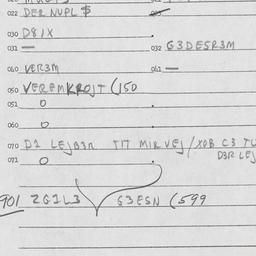 022 DER NVPL $
030 D8 1X
031 —
032 G3DESR3M
040 VER3M
041 —
050 VEREMKROJT (150
051 0
060 0
070 D1 LEJB3R TIT MIRVEJ/XOB C3 TU
D3R LEJ
071 0
901 2G1L3 G3ESN (599